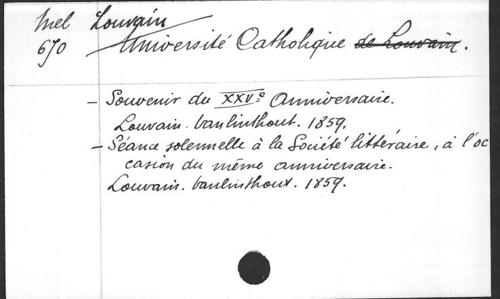 Mel Louvain
670 Université Catholique de Louvain.
- Souvenir du XXVe Anniversaire.
Louvain. Vanlinthout. 1859.
- Séance solennelle à la Société littéraire, à l'oc
casion du même anniversaire.
Louvain. Vanlinthout. 1859.